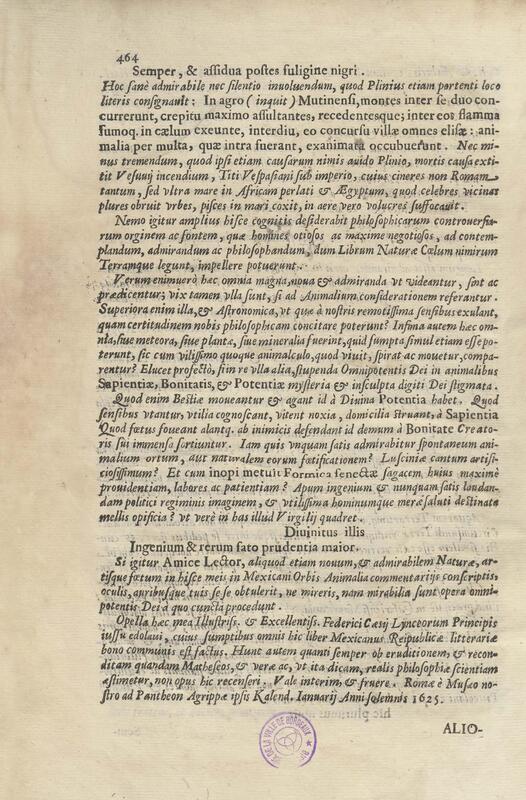 464
Semper, & assidua postes fuligine nigri.
Hoc sanè admirabile nec silentio inuoluendum, quod Plinius etiam portenti loco
literis consignauit: In agro (inquit) Mutinensi, montes inter se duo con-
currerunt, crepitu maximo assultantes, recedentesque; inter eos flamma
fumoq. in cælum exeunte, interdiu, eo concursu villæ omnes elisæ: ani-
malia per multa, quæ intra fuerant, exanimata occubuerunt. Nec mi-
nus tremendum, quod ipsi etiam causarum nimis auido Plinio, mortis causa exti-
tit Vesuuij incendium, Titi Vespasiani sub imperio, cuius cineres non Romam
tantum, sed vltra mare in Africam perlati & Ægyptum, quod celebres vicinas
plures obruit vrbes, pisces in mari coxit, in aere vero volucres suffocauit.
Nemo igitur amplius hisce cognitis desiderabit philosophicarum controuersia-
rum orginem ac fontem, quæ homines otiosos ac maxime negotiosos, ad contem-
plandum, admirandum ac philosophandum, dum Librum Naturæ Cœlum nimirum
Terramque legunt, impellere potuerunt.
Verum enimuerò hæc omnia magna, noua & admiranda vt videantur, sint ac
prædicentur; vix tamen vlla sunt, si ad Animalium considerationem referantur.
Superiora enim illa, & Astronomica, vt quæ à nostris remotissima sensibus exulant,
quam certitudinem nobis philosophicam concitare poterunt? Infima autem hæc om-
nia, siue meteora, siue plantæ, siue mineralia fuerint, quid sumpta simul etiam esse po-
terunt, sic cum vilissimo quoque animalculo, quod viuit, spirat ac mouetur, compa-
rentur? Elucet profectò, si in re vlla alia, stupenda Omnipotentis Dei in animalibus
Sapientiæ, Bonitatis, & Potentiæ mysteria & insculpta digiti Dei stigmata.
Quod enim Bestiæ moueantur & agant id à Diuina Potentia habet. Quod
sensibus vtantur, vtilia cognoscant, vitent noxia, domicilia struant, à Sapientia
Quod fœtus foueant alantq. ab inimicis defendant id demum à Bonitate Creato-
ris sui immensa sortiuntur. Iam quis vnquam satis admirabitur spontaneum ani-
malium ortum, aut naturalem eorum fœtificationem? Lusciniæ cantum artifi-
ciosissimum? Et cum inopi metuit Formica senectæ sagacem huius maximè
prouidentiam, labores ac patientiam? Apum ingenium & nunquam satis laudan-
dam politici regiminis imaginem, & vtilissima hominumque meræ saluti destinata
mellis opificia? vt verè in has illud Virgilij quadret.
Diuinitus illis
Ingenium & rerum fato prudentia maior.
Si igitur Amice Lector, aliquod etiam nouum, & admirabilem Naturæ, ar-
tisque fœtum in hisce meis in Mexicani Orbis Animalia commentarijs conscriptis
oculis, auribusque tuis se se obtulerit, ne mireris, nam mirabilia sunt opera omni-
potentis Dei à quo cuncta procedunt.
Opella hæc mea Illustriss. & Excellentiss. Federici Cæsij Lynceorum Principis
iussu edolaui, cuius sumptibus omnis hic liber Mexicanus Reipublicæ litterariæ
bono communis est factus. Hunc autem quanti semper ob eruditionem, & recon-
ditam quandam Matheseos, & veræ ac, vt ita dicam, realis philosophiæ scientiam
æstimetur, non opus hic recenseri. Vale interim, & fruere. Romæ è Musæo no-
stro ad Pantheon Agrippæ ipsis Kalend. Ianuarij Anni solemnis 1625.
ALIO-
DE LA VILLE DE BORDEAUX